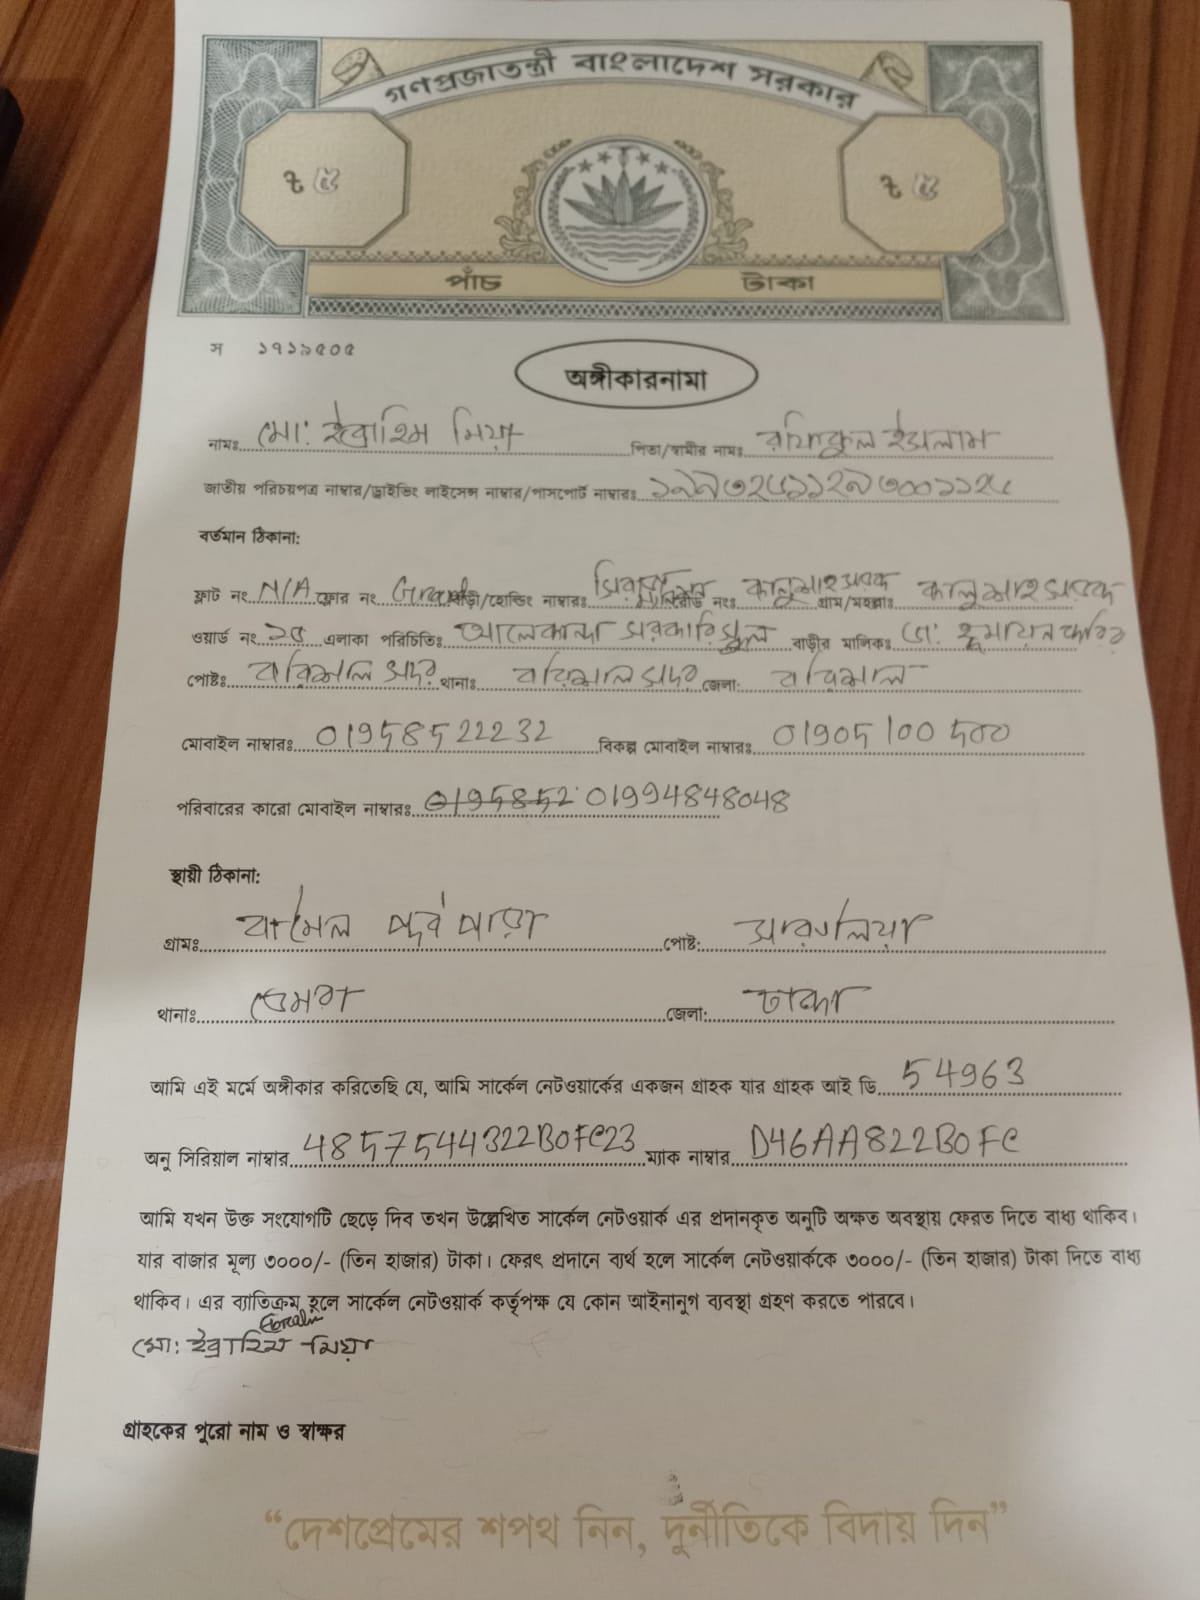 গণপ্রজাতন্ত্রী বাংলাদেশ সরকার
৳ ৫ ৳ ৫
পাঁচ টাকা
স ১৭১৯৫০৫
অঙ্গীকারনামা
নামঃ মো: ইব্রাহিম মিয়া পিতা/স্বামীর নামঃ রফিকুল ইসলাম
জাতীয় পরিচয়পত্র নাম্বার/ড্রাইভিং লাইসেন্স নাম্বার/পাসপোর্ট নাম্বারঃ
বর্তমান ঠিকানা:
ফ্লাট নং N/A ফ্লোর নং বাড়ী/হোল্ডিং নাম্বারঃ রোড নংঃ কালুশাহ সরক গ্রাম/মহল্লাঃ কালুশাহ সরক
ওয়ার্ড নং ১৫ এলাকা পরিচিতিঃ আলেকান্দা সরকারি স্কুল বাড়ীর মালিকঃ ডা: হুমায়ন কবির
পোষ্টঃ বরিশাল সদর থানাঃ বরিশাল সদর জেলা: বরিশাল
মোবাইল নাম্বারঃ 01958522232 বিকল্প মোবাইল নাম্বারঃ 01905100500
পরিবারের কারো মোবাইল নাম্বারঃ 0195852 01994848048
স্থায়ী ঠিকানা:
গ্রামঃ বামৈল পূর্ব পাড়া পোষ্ট: সারুলিয়া
থানাঃ ডেমরা জেলা: ঢাকা
আমি এই মর্মে অঙ্গীকার করিতেছি যে, আমি সার্কেল নেটওয়ার্কের একজন গ্রাহক যার গ্রাহক আই ডি 54963
অনু সিরিয়াল নাম্বার 4857544322B0FC23 ম্যাক নাম্বার D46AA822B0FC
আমি যখন উক্ত সংযোগটি ছেড়ে দিব তখন উল্লেখিত সার্কেল নেটওয়ার্ক এর প্রদানকৃত অনুটি অক্ষত অবস্থায় ফেরত দিতে বাধ্য থাকিব।
যার বাজার মূল্য ৩০০০/- (তিন হাজার) টাকা। ফেরৎ প্রদানে ব্যর্থ হলে সার্কেল নেটওয়ার্ককে ৩০০০/- (তিন হাজার) টাকা দিতে বাধ্য
থাকিব। এর ব্যাতিক্রম হলে সার্কেল নেটওয়ার্ক কর্তৃপক্ষ যে কোন আইনানুগ ব্যবস্থা গ্রহণ করতে পারবে।
মো: ইব্রাহিম মিয়া
গ্রাহকের পুরো নাম ও স্বাক্ষর
“দেশপ্রেমের শপথ নিন, দুর্নীতিকে বিদায় দিন”